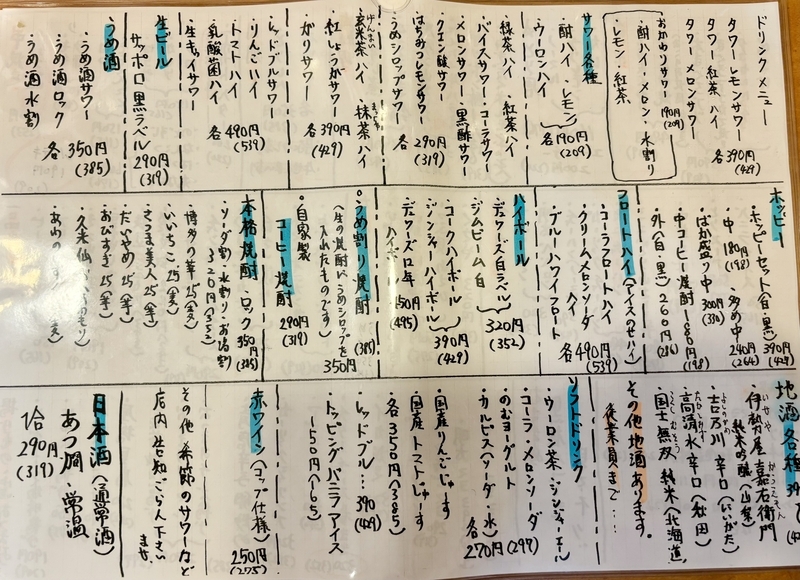 ドリンクメニュー
タワーレモンサワー
タワー紅茶ハイ
タワーメロンサワー
各390円
(429)
おかわりサワー 190円
(209)
・酎ハイ・メロン・水割り
・レモン・紅茶
サワー各種
・酎ハイ・レモン
・ウーロンハイ
各190円
(209)
・緑茶ハイ・紅茶ハイ
・バイスサワー・コーラサワー
・メロンサワー・黒酢サワー
・クエン酸サワー
・はちみつレモンサワー
・うめシロップサワー
各290円
(319)
げんまい まっちゃ
・玄米茶ハイ・抹茶ハイ
・紅しょうがサワー
・がりサワー
各390円
(429)
・レッドブルサワー
・りんごハイ
・トマトハイ
・乳酸菌ハイ
・生キウイサワー
各490円
(539)
生ビール
サッポロ黒ラベル
290円
(319)
うめ酒
・うめ酒サワー
・うめ酒ロック
・うめ酒水割
各350円
(385)
ホッピー
・ホッピーセット(白・黒) 390円
(429)
・中 180円 多め中 240円
(198) (264)
・ばか盛り中 300円
(330)
・中コーヒー焼酎 180円
(198)
・外(白・黒) 260円
(286)
フロートハイ(アイスのせハイ)
・コーラフロートハイ
・クリームメロンソーダハイ
・ブルーハワイフロート
各490円
(539)
ハイボール
・デュワーズ白ラベル
・ジムビーム白
320円
(352)
・コークハイボール
・ジンジャーハイボール
390円
(429)
・デュワーズ12年
ハイボール 450円
(495)
○うめ割り焼酎
(385)
350円
(生の焼酎にうめシロップを
入れたものです)
・自家製
コーヒー焼酎
290円
(319)
本格焼酎・ロック 350円
(385)
・ソーダ割・水割り・お湯割
320円(352)
・博多の華25(麦)
・いいちこ25(麦)
・さつま美人25(芋)
・だいやめ25(芋)
・おびすぎ25(芋)
・久米仙
地酒各種
いせや かうえもん
・伊勢屋嘉右衛門
純米吟醸(山梨)
よしのがわ
・吉乃川 辛口(にいがた)
・高清水 辛口(秋田)
・国士無双 純米(北海道)
その他地酒あります。
従業員まで…
ソフトドリンク
・ウーロン茶・ジンジャーエール
・コーラ・メロンソーダ
・のむヨーグルト
・カルピス(ソーダ・水)
各270円
(297)
・国産りんごじゅーす
・国産トマトじゅーす
各350円(385)
・レッドブル…390
(429)
・トッピングバニラアイス
150円(165)
赤ワイン(コップ仕様)
250円
(275)
その他季節のサワーなど
店内告知ごらん下さい
ませ
日本酒(通常酒)
あつ燗・常温
1合
290円
(319)